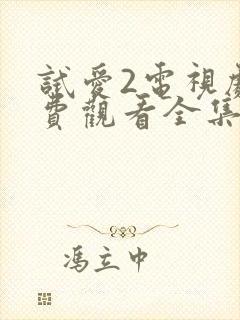 試愛2電視劇
費觀看全集
馮立中